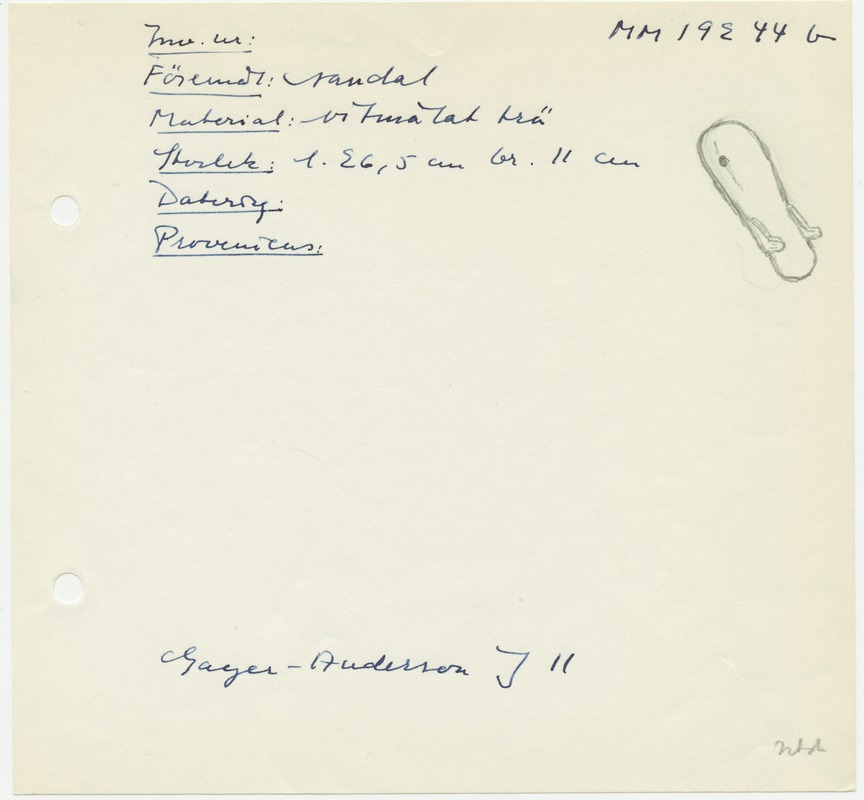 Inv. nr: MM 19244 b
Föremål: sandal
Material: vitmålat trä
Storlek: l. 26,5 cm br. 11 cm
Daterig:
Proveniens:
Gayer-Anderson J 11